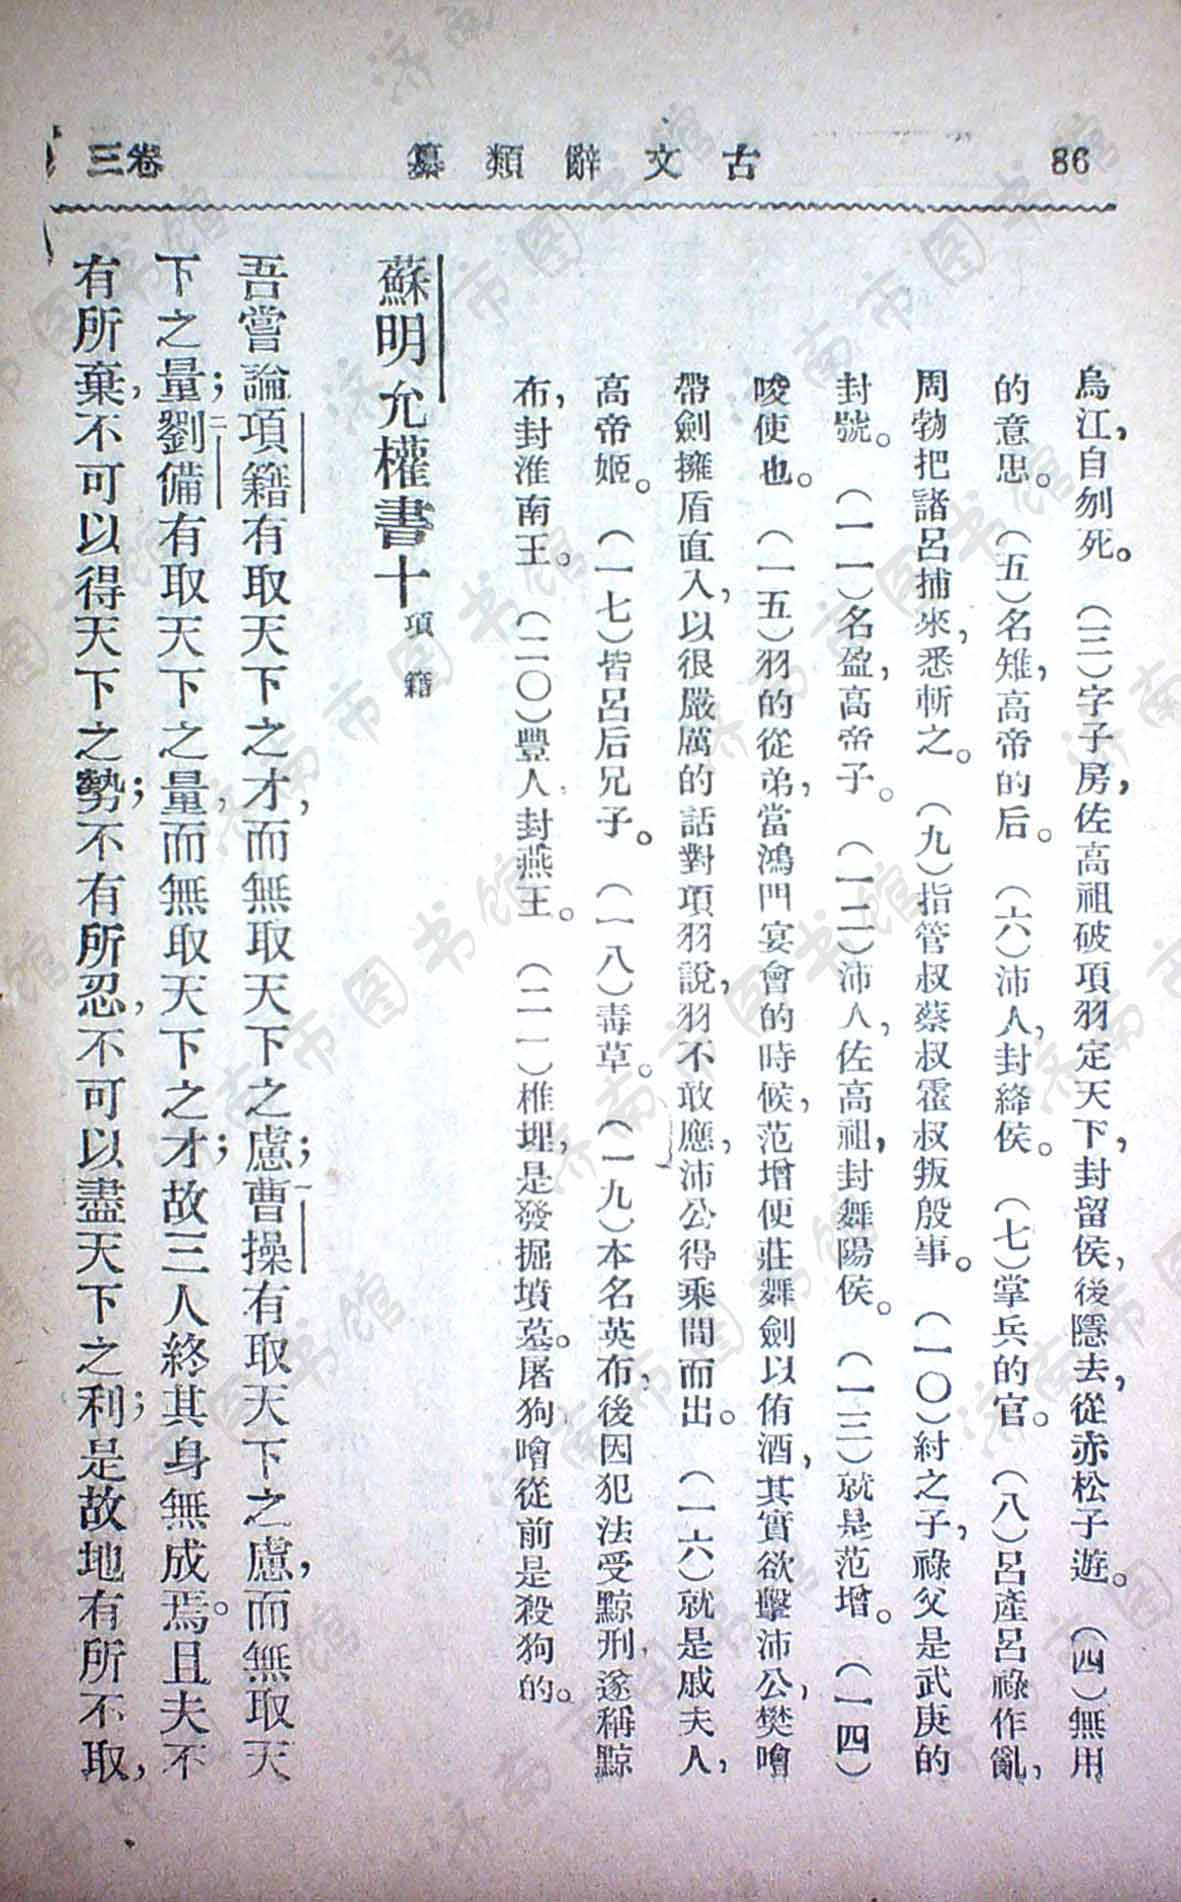 86
古文辭類纂
卷三
烏江,自刎死。(三)字子房,佐高祖破項羽定天下,封留侯,後隱去,從赤松子遊。(四)無用
的意思。(五)名雉,高帝的后。(六)沛人,封絳侯。(七)掌兵的官。(八)呂產呂祿作亂,
周勃把諸呂捕來,悉斬之。(九)指管叔蔡叔霍叔叛殷事。(一〇)紂之子,祿父是武庚的
封號。(一一)名盈,高帝子。(一二)沛人,佐高祖,封舞陽侯。(一三)就是范增。(一四)
唆使也。(一五)羽的從弟,當鴻門宴會的時候,范增便莊舞劍以侑酒,其實欲擊沛公,樊噲
帶劍擁盾直入,以很嚴厲的話對項羽說,羽不敢應,沛公得乘間而出。(一六)就是戚夫人,
高帝姬。(一七)皆呂后兄子。(一八)毒草。(一九)本名英布,後因犯法受黥刑,遂稱黥
布,封淮南王。(二〇)豐人,封燕王。(二一)椎埋,是發掘墳墓。屠狗噲從前是殺狗的。
蘇明允權書十 項籍
吾嘗論項籍有取天下之才,而無取天下之慮;曹操一有取天下之慮,而無取天
下之量;劉備二有取天下之量,而無取天下之才;故三人終其身無成焉。且夫不
有所棄,不可以得天下之勢;不有所忍,不可以盡天下之利;是故地有所不取,
济南市图书馆